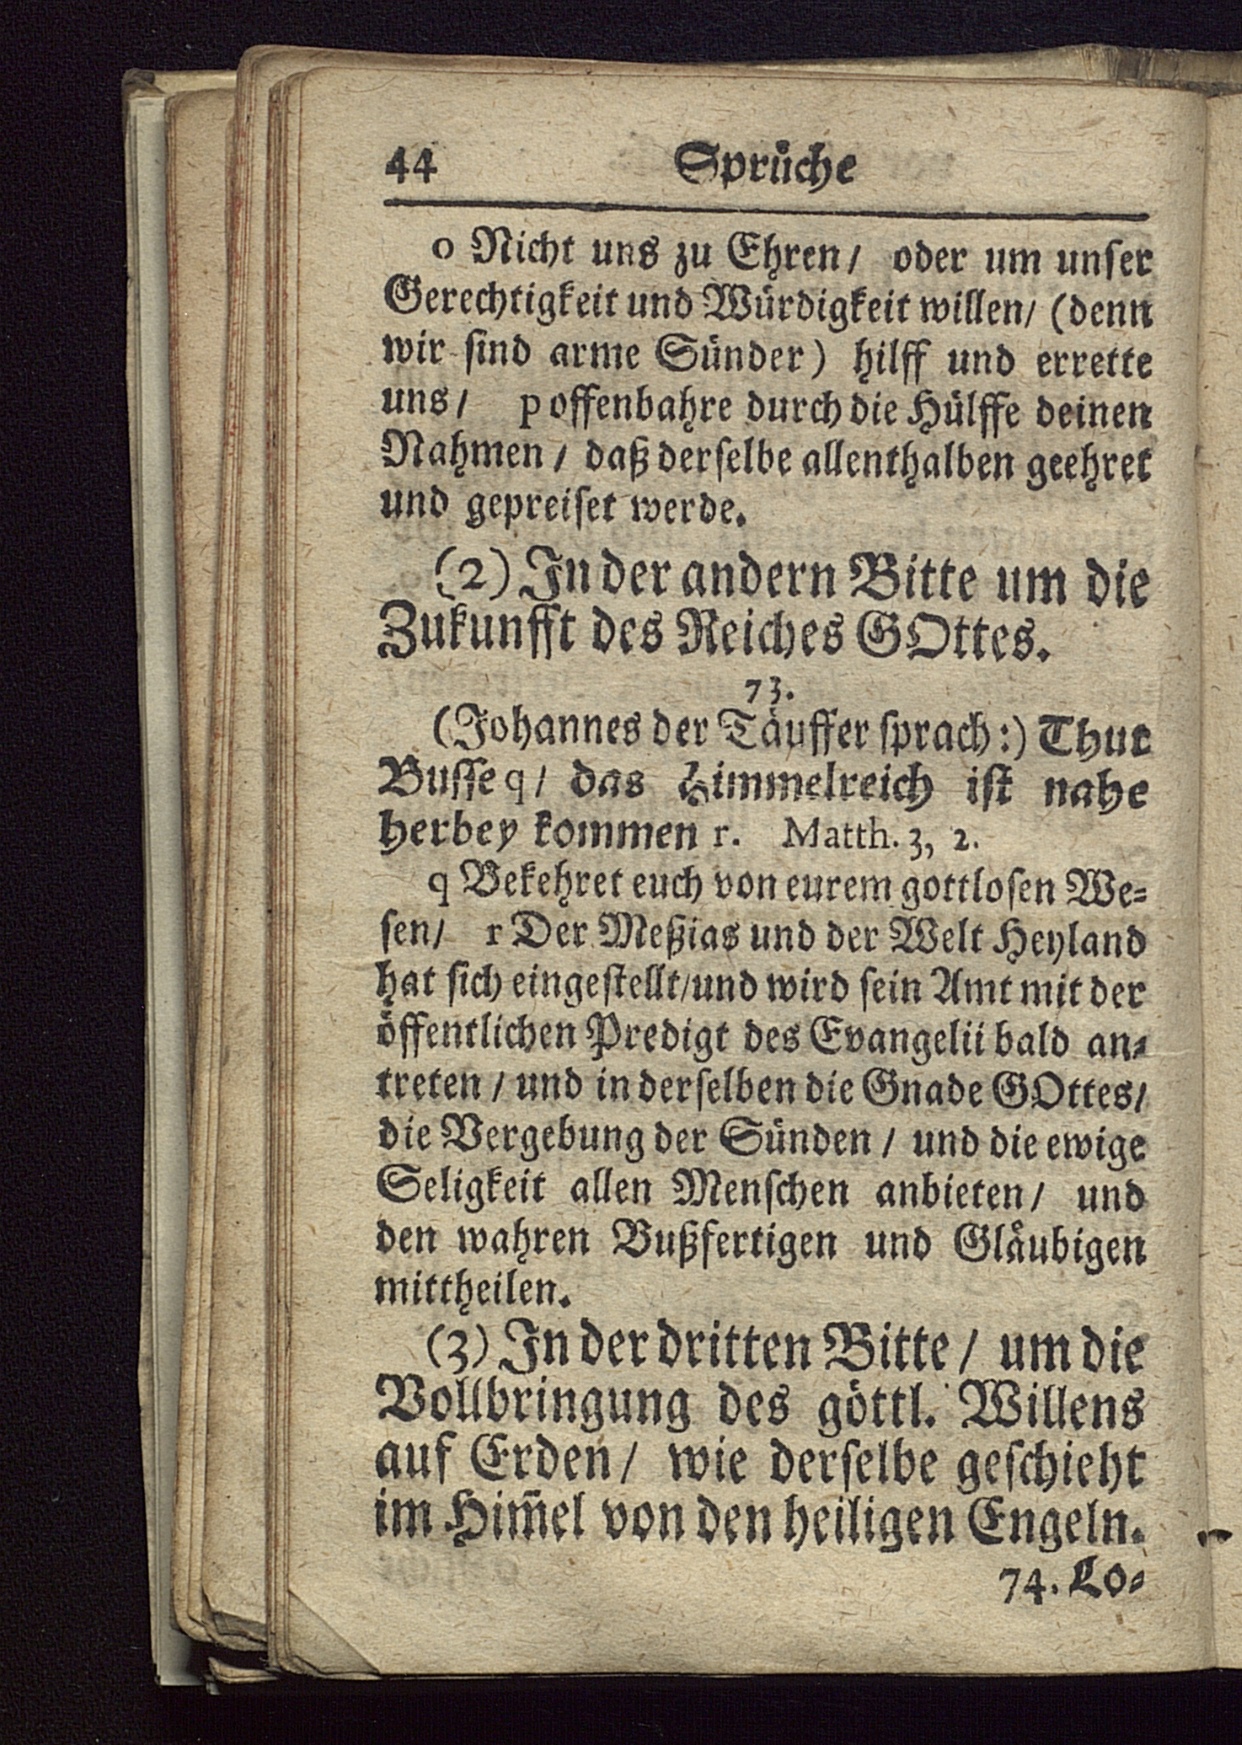 44 Sprüche
o Nicht uns zu Ehren/ oder um unser
Gerechtigkeit und Würdigkeit willen/ (denn
wir sind arme Sünder) hilff und errette
uns/ p offenbahre durch die Hülffe deinen
Nahmen/ daß derselbe allenthalben geehret
und gepreiset werde.
(2) In der andern Bitte um die
Zukunfft des Reiches GOttes.
73.
(Johannes der Täuffer sprach:) Thut
Busse q/ das Himmelreich ist nahe
herbey kommen r. Matth. 3, 2.
q Bekehret euch von eurem gottlosen We=
sen/ r Der Meßias und der Welt Heyland
hat sich eingestellt/und wird sein Amt mit der
öffentlichen Predigt des Evangelii bald an=
treten / und in derselben die Gnade GOttes/
die Vergebung der Sünden / und die ewige
Seligkeit allen Menschen anbieten/ und
den wahren Bußfertigen und Gläubigen
mittheilen.
(3) In der dritten Bitte / um die
Vollbringung des göttl. Willens
auf Erden/ wie derselbe geschieht
im Him̃el von den heiligen Engeln.
74. Lo=